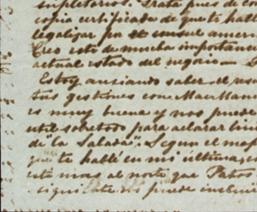 supletorios. Trata pues de con
copia certificada de que te habl
legalizar por el consul amer
Creo esto de mucha importancia
actual estado del negocio —
Estoy ansiando saber el resu
tus gestiones con MacMan
es muy buena y nos puede
util sobretodo para aclarar lin
de "la Salada". Segun el map
que te hablé en mi última, es
está mas al norte que Patos
siqui puede inclui